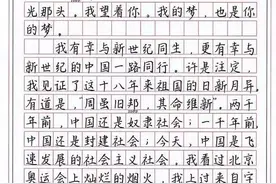 光那头。我望着你。我的梦，也是你
的梦。
我有幸与新世纪同生，更有幸与
新世纪的中国一路同行。许是注定，
我见证了这十八年来祖国的日新月异。
有道是，“周虽旧邦，其命维新”，两千
年前，中国还是奴隶社会；一千年前，
中国还是封建社会；今天，中国是飞
速发展的社会主义社会。我看过北京
奥运会上灿烂的烟火，我上过来自宇